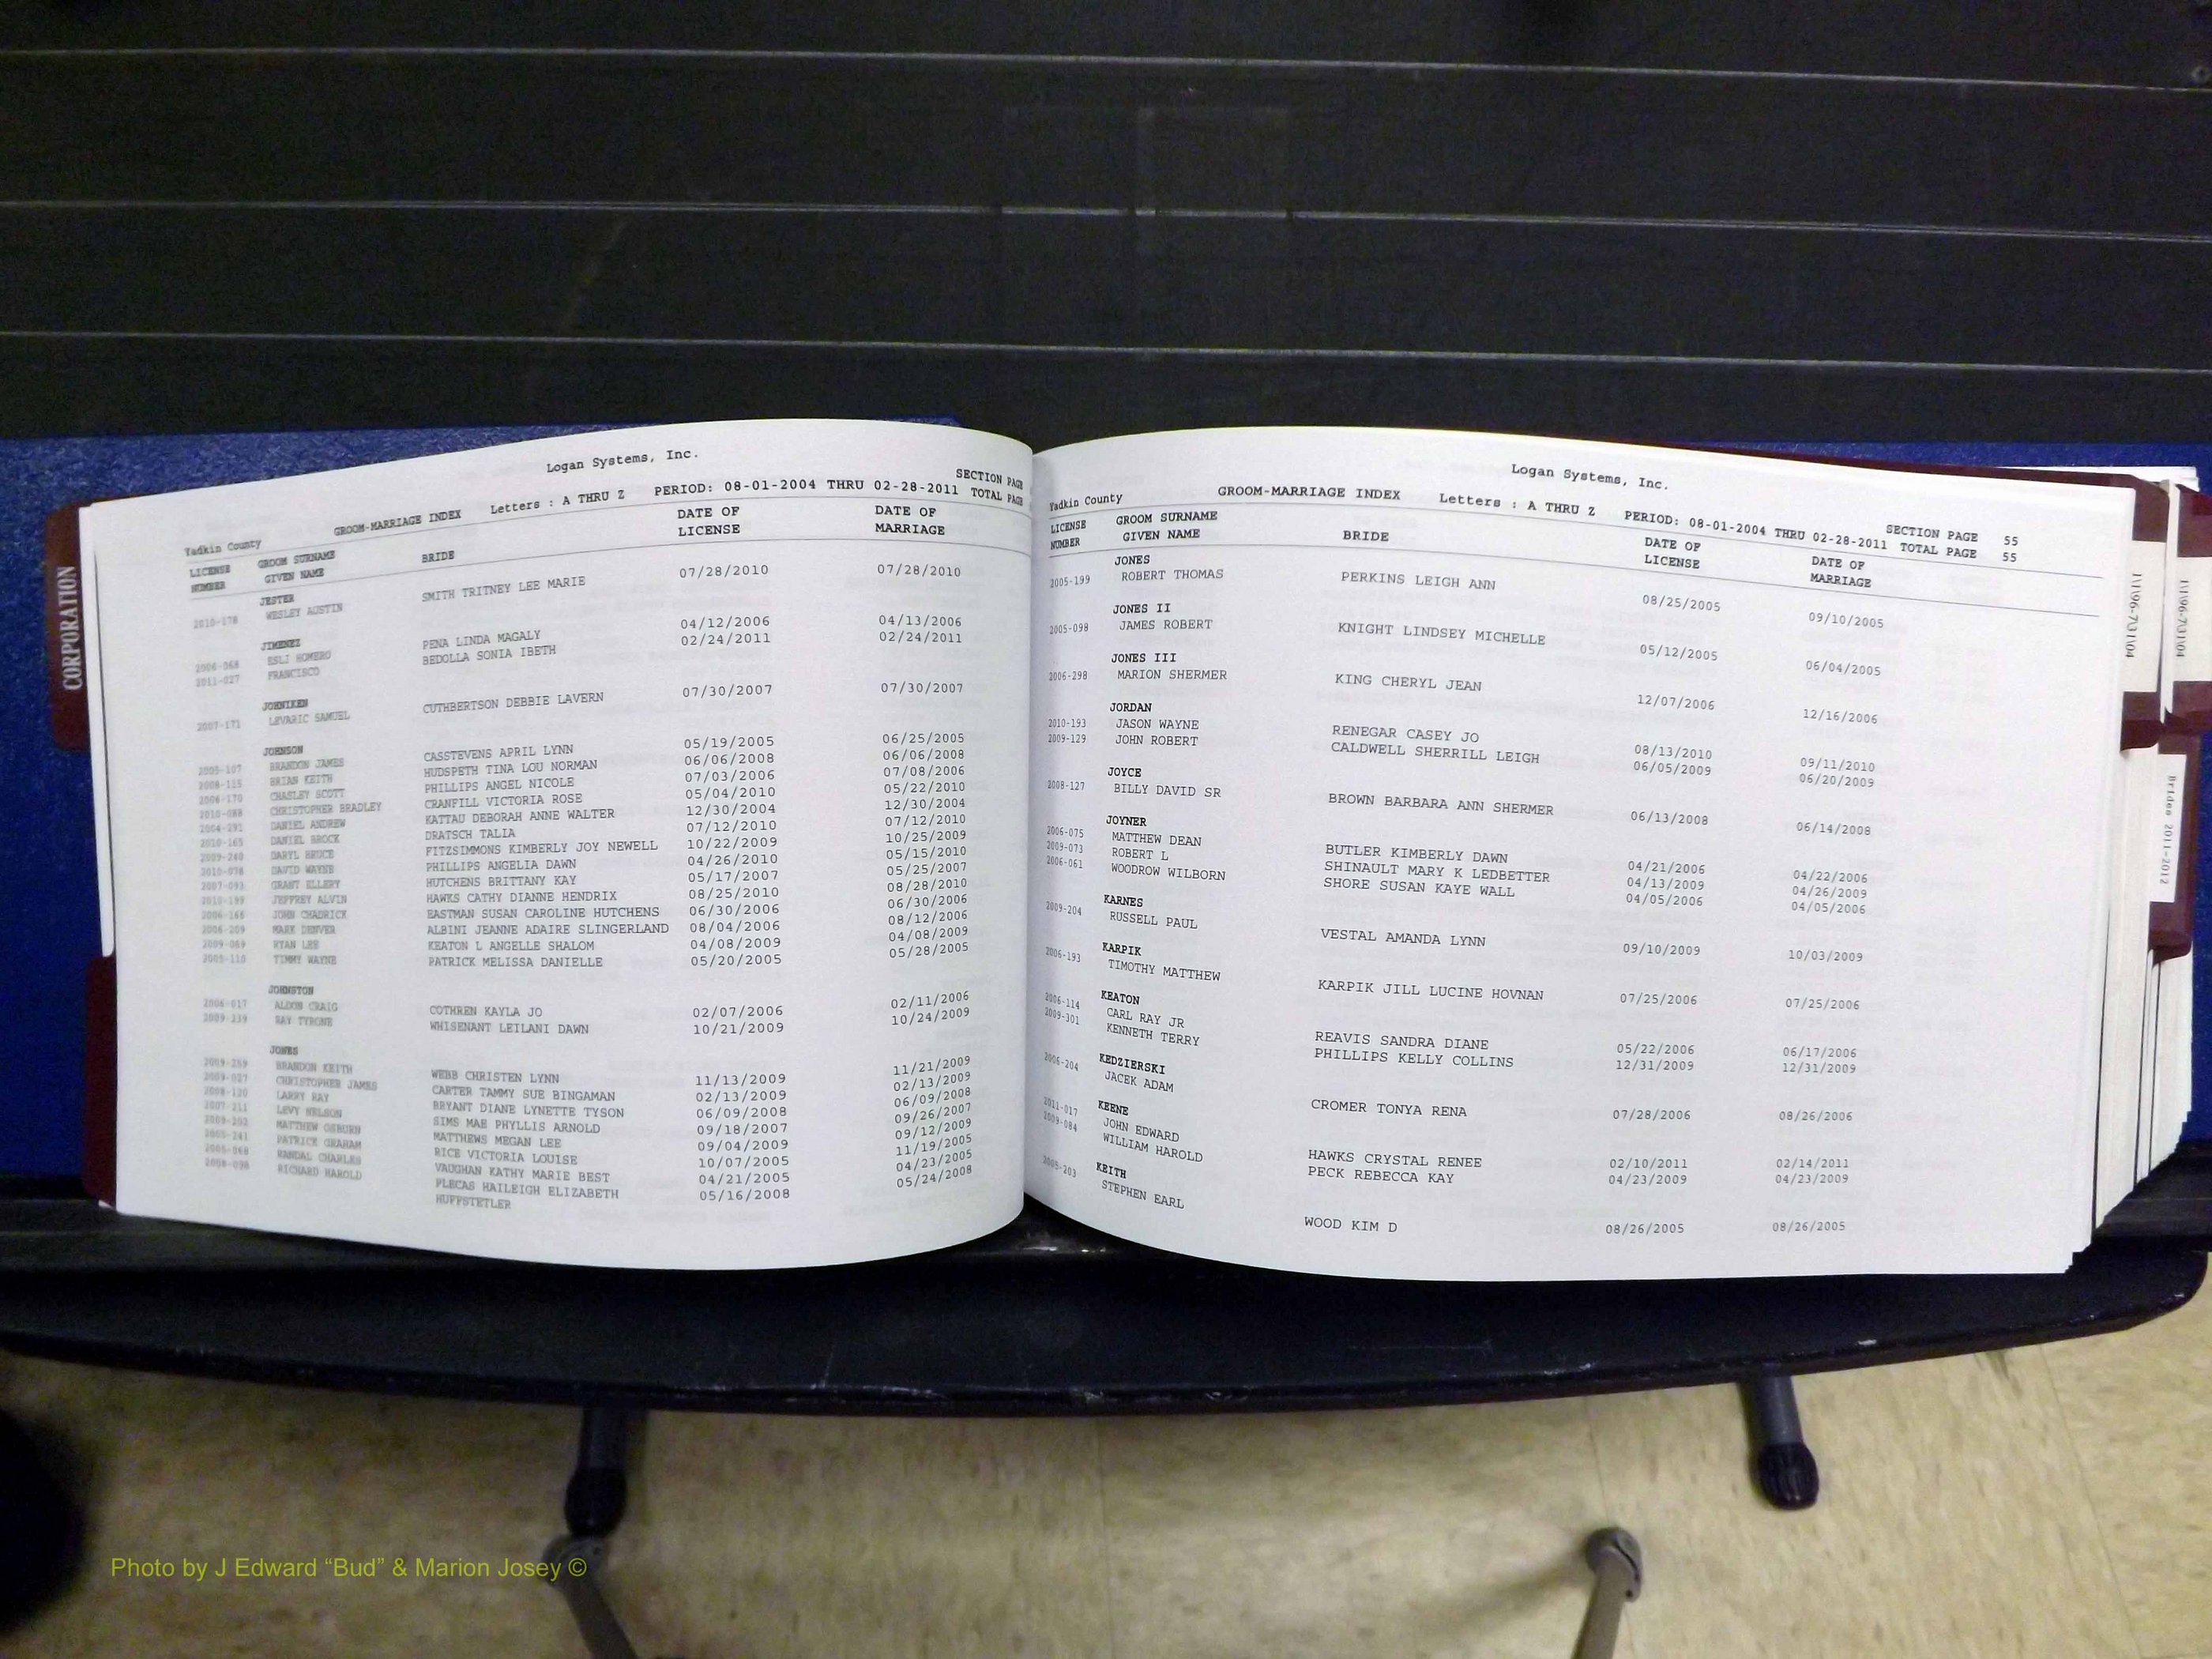 CORPORATION
Logan Systems, Inc.
SECTION PAGE
Yadkin County GROOM-MARRIAGE INDEX Letters : A THRU Z PERIOD: 08-01-2004 THRU 02-28-2011 TOTAL PAGE
LICENSE GROOM SURNAME DATE OF DATE OF
NUMBER GIVEN NAME BRIDE LICENSE MARRIAGE
JESTER
2010-178 WESLEY AUSTIN SMITH TRITNEY LEE MARIE 07/28/2010 07/28/2010
JIMENEZ
2006-068 ESLI HOMERO PENA LINDA MAGALY 04/12/2006 04/13/2006
2011-027 FRANCISCO BEDOLLA SONIA IBETH 02/24/2011 02/24/2011
JOHNIKEN
2007-171 LEVARIC SAMUEL CUTHBERTSON DEBBIE LAVERN 07/30/2007 07/30/2007
JOHNSON
2005-107 BRANDON JAMES CASSTEVENS APRIL LYNN 05/19/2005 06/25/2005
2008-115 BRIAN KEITH HUDSPETH TINA LOU NORMAN 06/06/2008 06/06/2008
2006-170 CHASLEY SCOTT PHILLIPS ANGEL NICOLE 07/03/2006 07/08/2006
2010-088 CHRISTOPHER BRADLEY CRANFILL VICTORIA ROSE 05/04/2010 05/22/2010
2004-291 DANIEL ANDREW KATTAU DEBORAH ANNE WALTER 12/30/2004 12/30/2004
2010-165 DANIEL BROCK DRATSCH TALIA 07/12/2010 07/12/2010
2009-240 DARYL BRUCE FITZSIMMONS KIMBERLY JOY NEWELL 10/22/2009 10/25/2009
2010-078 DAVID WAYNE PHILLIPS ANGELIA DAWN 04/26/2010 05/15/2010
2007-093 GRANT ELLERY HUTCHENS BRITTANY KAY 05/17/2007 05/25/2007
2010-199 JEFFREY ALVIN HAWKS CATHY DIANNE HENDRIX 08/25/2010 08/28/2010
2006-166 JOHN CHADRICK EASTMAN SUSAN CAROLINE HUTCHENS 06/30/2006 06/30/2006
2006-209 MARK DENVER ALBINI JEANNE ADAIRE SLINGERLAND 08/04/2006 08/12/2006
2009-069 RYAN LEE KEATON L ANGELLE SHALOM 04/08/2009 04/08/2009
2005-110 TIMMY WAYNE PATRICK MELISSA DANIELLE 05/20/2005 05/28/2005
JOHNSTON
2006-017 ALDON CRAIG COTHREN KAYLA JO 02/07/2006 02/11/2006
2009-239 RAY TYRONE WHISENANT LEILANI DAWN 10/21/2009 10/24/2009
JONES
2009-259 BRANDON KEITH WEBB CHRISTEN LYNN 11/13/2009 11/21/2009
2009-027 CHRISTOPHER JAMES CARTER TAMMY SUE BINGAMAN 02/13/2009 02/13/2009
2008-120 LARRY RAY BRYANT DIANE LYNETTE TYSON 06/09/2008 06/09/2008
2007-211 LEVY NELSON SIMS MAE PHYLLIS ARNOLD 09/18/2007 09/26/2007
2009-202 MATTHEW OSBURN MATTHEWS MEGAN LEE 09/04/2009 09/12/2009
2005-241 PATRICK GRAHAM RICE VICTORIA LOUISE 10/07/2005 11/19/2005
2005-068 RANDAL CHARLES VAUGHAN KATHY MARIE BEST 04/21/2005 04/23/2005
2008-098 RICHARD HAROLD PLECAS HAILEIGH ELIZABETH 05/16/2008 05/24/2008
HUFFSTETLER
Logan Systems, Inc.
Yadkin County GROOM-MARRIAGE INDEX Letters : A THRU Z PERIOD: 08-01-2004 THRU 02-28-2011 SECTION PAGE 55
TOTAL PAGE 55
LICENSE GROOM SURNAME DATE OF DATE OF
NUMBER GIVEN NAME BRIDE LICENSE MARRIAGE
JONES
2005-199 ROBERT THOMAS PERKINS LEIGH ANN 08/25/2005 09/10/2005
JONES II
2005-098 JAMES ROBERT KNIGHT LINDSEY MICHELLE 05/12/2005 06/04/2005
JONES III
2006-298 MARION SHERMER KING CHERYL JEAN 12/07/2006 12/16/2006
JORDAN
2010-193 JASON WAYNE RENEGAR CASEY JO 08/13/2010 09/11/2010
2009-129 JOHN ROBERT CALDWELL SHERRILL LEIGH 06/05/2009 06/20/2009
JOYCE
2008-127 BILLY DAVID SR BROWN BARBARA ANN SHERMER 06/13/2008 06/14/2008
JOYNER
2006-075 MATTHEW DEAN BUTLER KIMBERLY DAWN 04/21/2006 04/22/2006
2009-073 ROBERT L SHINAULT MARY K LEDBETTER 04/13/2009 04/26/2009
2006-061 WOODROW WILBORN SHORE SUSAN KAYE WALL 04/05/2006 04/05/2006
KARNES
2009-204 RUSSELL PAUL VESTAL AMANDA LYNN 09/10/2009 10/03/2009
KARPIK
2006-193 TIMOTHY MATTHEW KARPIK JILL LUCINE HOVNAN 07/25/2006 07/25/2006
KEATON
2006-114 CARL RAY JR REAVIS SANDRA DIANE 05/22/2006 06/17/2006
2009-301 KENNETH TERRY PHILLIPS KELLY COLLINS 12/31/2009 12/31/2009
KEDZIERSKI
2006-204 JACEK ADAM CROMER TONYA RENA 07/28/2006 08/26/2006
KEENE
2011-017 JOHN EDWARD HAWKS CRYSTAL RENEE 02/10/2011 02/14/2011
2009-084 WILLIAM HAROLD PECK REBECCA KAY 04/23/2009 04/23/2009
KEITH
2005-203 STEPHEN EARL WOOD KIM D 08/26/2005 08/26/2005
1/1/96-7/31/04
1/1/96-7/31/04
Brides 2011-2012
Photo by J Edward “Bud” & Marion Josey ©